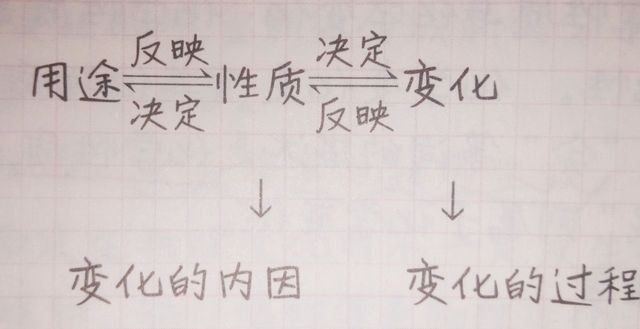 反映 决定
用途⇌性质⇌变化
决定 反映
↓ ↓
变化的内因 变化的过程